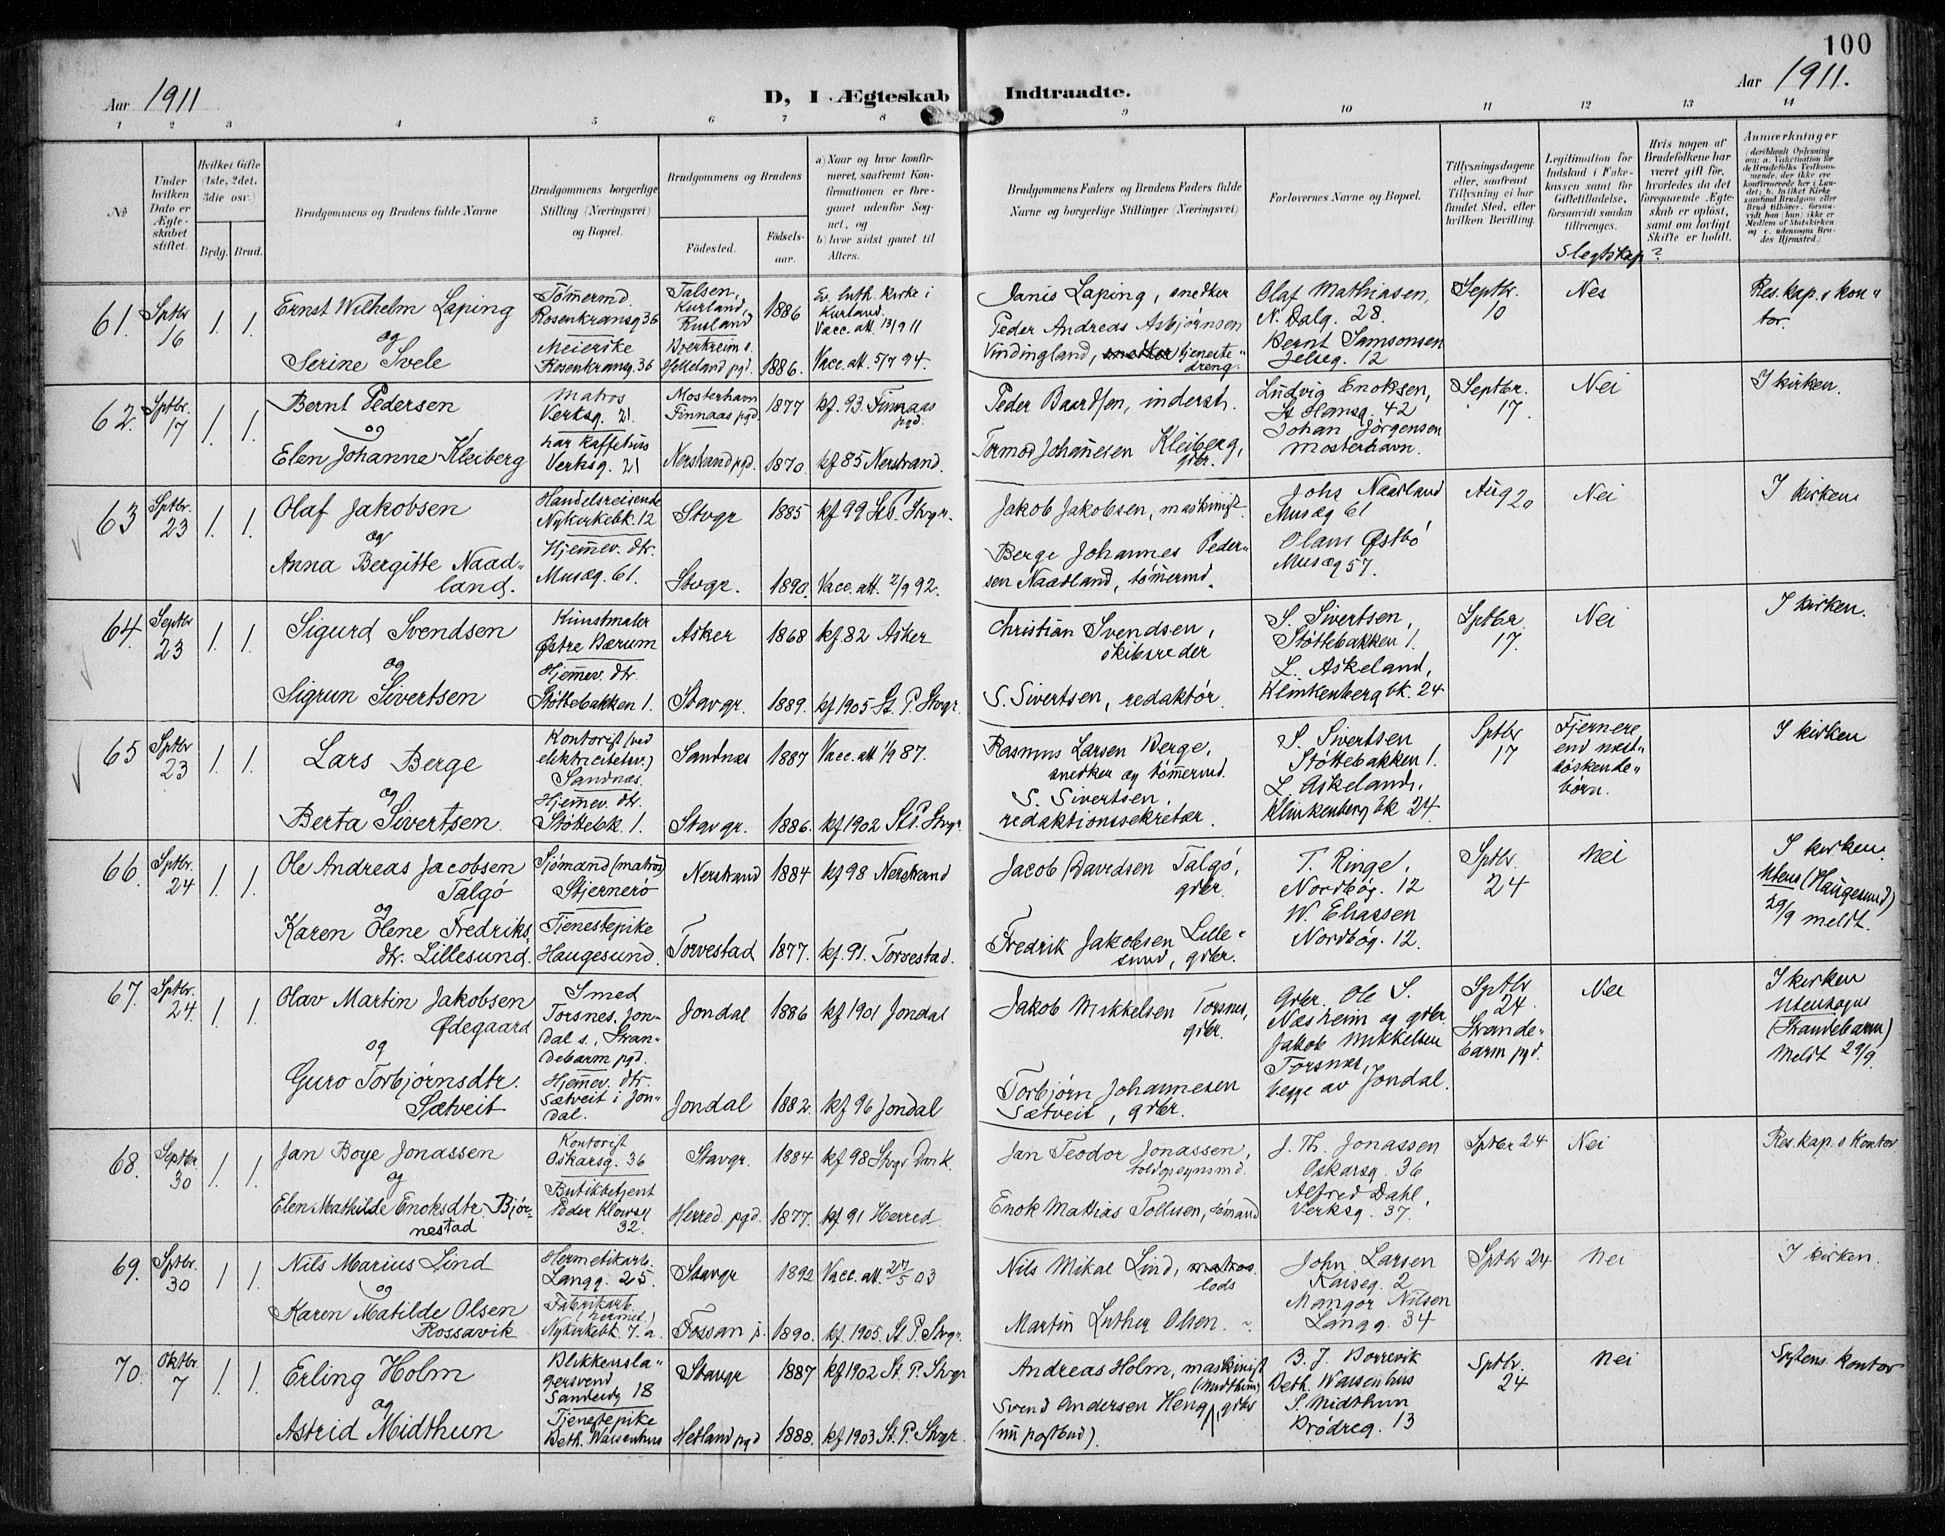 100
Aar 1911
D, I Ægteskab Indtraadte.
Aar 1911.
1 2 3 4 5 6 7 8 9 10 11 12 13 14
No
Under hvilken Dato er Ægteskabet stiftet.
Hvilket Gifte (1ste, 2det, 3die osv.)
Brdg. Brud.
Brudgommens og Brudens fulde Navne
Brudgommens borgerlige Stilling (Næringsvei) og Bopæl.
Brudgommens og Brudens
Fødested.
Fødselsaar.
a) Naar og hvor konfirmeret, saafremt Konfirmationen er foregaaet udenfor Sognet, og
b) hvor sidst gaaet til Alters.
Brudgommens Faders og Brudens Faders fulde Navne og borgerlige Stillinger (Næringsvei)
Forlovernes Navne og Bopæl.
Tillysningsdagene eller, saafremt Tillysning ei har fundet Sted, efter hvilken Bevilling.
Legitimation for Indskud i Enkekassen samt for Giftetilladelse, forsaavidt saadan tiltrænges.
Slegtskap?
Hvis nogen af Brudefolkene har været gift før, hvorledes da det foregaaende Ægteskab er opløst, samt om lovligt Skifte er holdt.
Anmærkninger
(deriblandt Oplysning om: a. Vakcination for de Brudefolks Vedkommende, der ikke ere konfirmerede her i Landet; b. hvilket Kirkesamfund Brudgom eller Brud tilhører, forsaavidt han (hun) ikke er Medlem af Statskirken og c. udensogns Brudes Hjemsted.)
61. Septbr 16 1. 1.
Ernst Wilhelm Laping
og
Serine Svele
Tømermd.
Rosenkransg 36
Meierske
Rosenkransg. 36
Talsen, Kurland, Rusland 1886
Bjerkreim s. Helleland pgd. 1886.
Ev. luth. kirke i Kurland.
Vacc. att. 13/9 11
Vacc. att. 5/7 94.
Janis Laping, snedker
Peder Andreas Asbjørnsen
Vindingland, snedker tjenestedreng.
Olaf Mathiasen,
N. Dalg. 28.
Bernt Samsonsen
Jelseg. 12
Septbr. 10
Nei
Res. kap.s kontor.
62. Sptbr. 17 1. 1.
Bernt Pedersen
og
Elen Johanne Kleiberg
Matros
Verksg. 21.
har kaffehus
Verksg. 21
Mosterhavn Finnaas pgd. 1877 kf. 93. Finnaas pgd.
Nerstrand pgd. 1870. kf 85 Nerstrand.
Peder Baardsen, inderst.
Tormod Johannesen Kleiberg, gbr.
Ludvig Enoksen,
St Hansg. 42
Johan Jørgensen
Mosterhavn.
Septbr. 17.
Nei
I kirken.
63 Sptbr. 23 1. 1.
Olaf Jakobsen
og
Anna Bergitte Naadland.
Handelsreisende
Nykirkebk. 12
Hjemev. dtr.
Musæg. 61.
Stvgr 1885 kf 99 St P. Stvgr.
Stvgr. 1890. Vacc. att. 2/9 92.
Jakob Jakobsen, maskinist
Berge Johannes Pedersen Naadland, tømermd.
Johs Naadland
Musæg 61
Olaus Østbø
Musæg 57.
Aug 20
Nei
I kirken
64. Septbr 23 1. 1.
Sigurd Svendsen
og
Sigrun Sivertsen
Kunstmaler
Østre Bærum
Hjemev. dtr.
Støttebakken 1.
Asker 1868 kf 82 Asker
Stavgr. 1889. kf 1905 St. P. Stvgr.
Christian Svendsen, skibsreder
S. Sivertsen, redaktør.
S. Sivertsen,
Støttebakken 1.
L. Askeland,
Klinkenberg bk. 24
Sptbr 17.
Nei
I kirken.
65 Sptbr 23 1. 1.
Lars Berge
og
Berta Sivertsen.
Kontorist (ved elektricitetsv.)
Sandnæs.
Hjemev. dtr.
Støttebk. 1.
Sandnæs 1887 Vacc. att 1/9 87.
Stavgr. 1886. kf 1902 St P. Stvgr.
Rasmus Larsen Berge, snedker og tømermd.
S. Sivertsen, redaktionssekretær.
S. Sivertsen
Støttebakken 1.
L. Askeland,
Klinkenberg bk 24.
Sptbr 17
Fjernere end næstsøskendebørn.
I kirken
66. Sptbr. 24 1. 1.
Ole Andreas Jacobsen Talgø
og
Karen Olene Fredriksdtr. Lillesund.
Sjømand (matros)
Stjernerø
Tjenestepike
Haugesund.
Nerstrand 1884 kf 98 Nerstrand
Torvestad 1877. kf. 91. Torvestad.
Jacob Davidsen Talgø, gbr.
Fredrik Jakobsen Lillesund, gbr.
T. Ringe,
Nordbøg. 12
W. Eliassen
Nordbøg. 12.
Sptbr 24
Nei
I kirken.
Utens (Haugesund)
29/9 meldt.
67. Sptbr. 24. 1. 1.
Olav Martin Jakobsen Ødegaard
og
Guro Torbjørnsdtr. Sætveit
Smed
Torsnes, Jondal s., Strandebarm pgd.
Hjemev. dtr.
Sætveit i Jondal.
Jondal 1886 kf 1901 Jondal
Jondal 1882. kf 96 Jondal
Jakob Mikkelsen Torsnes, gbr.
Torbjørn Johannesen Sætveit, gbr.
Gbr. Ole S. Næsheim og gbr. Jakob Mikkelsen Torsnes, begge av Jondal.
Sptbr 24. Strandebarm pgd.
Nei
I kirken
Utensogns (Strandebarm)
Meldt 29/9.
68. Septbr. 30 1. 1.
Jan Boye Jonassen
og
Elen Mathilde Enoksdtr Bjørnestad
Kontorist
Oskarsg. 36
Butikbetjent
Peder Klowsg 32.
Stavgr. 1884 kf 98 Stvgr Domk.
Herred pgd. 1877. kf 91 Herred.
Jan Teodor Jonassen, toldopsynsmd.
Enok Mathias Tollisen, sømand
J. Th. Jonassen
Oskarsg. 36
Alfred Dahl,
Verksg. 37.
Sptbr 24
Nei
Res. kap. s kontor
69. Sptbr. 30 1 1.
Nils Marius Lind
og
Karen Matilde Olsen Rossavik
Hermetikarb.
Langg. 25.
Fabrikarb. (hermet.)
Nykirkebk. 7. a.
Stavgr 1892 Vacc. att. 27/5 03
Fossan p. 1890. kf. 1905. St P. Stvgr.
Nils Mikal Lind, matros. lods
Martin Luther Olsen.
John Larsen
Karseg. 2
Mangor Nilsen
Langg. 34
Sptbr 24
Nei
I kirken.
70. Oktbr. 7 1. 1.
Erling Holm
og
Astrid Midthun
Blikkenslagersvend
Sandeidg 18
Tjenestepike
Beth. Waisenhus
Stavgr 1887 kf 1902 St. P. Stvgr
Hetland pgd 1888. kf 1903 St. P. Stvgr.
Andreas Holm, maskinist
Svend Andersen Heng (Midthun), gbr
(nu postbud).
B. J. Borrevik
Beth. Waisenhus
S. Midthun
Brødreg. 13
Sptbr. 24
Nei
kontor